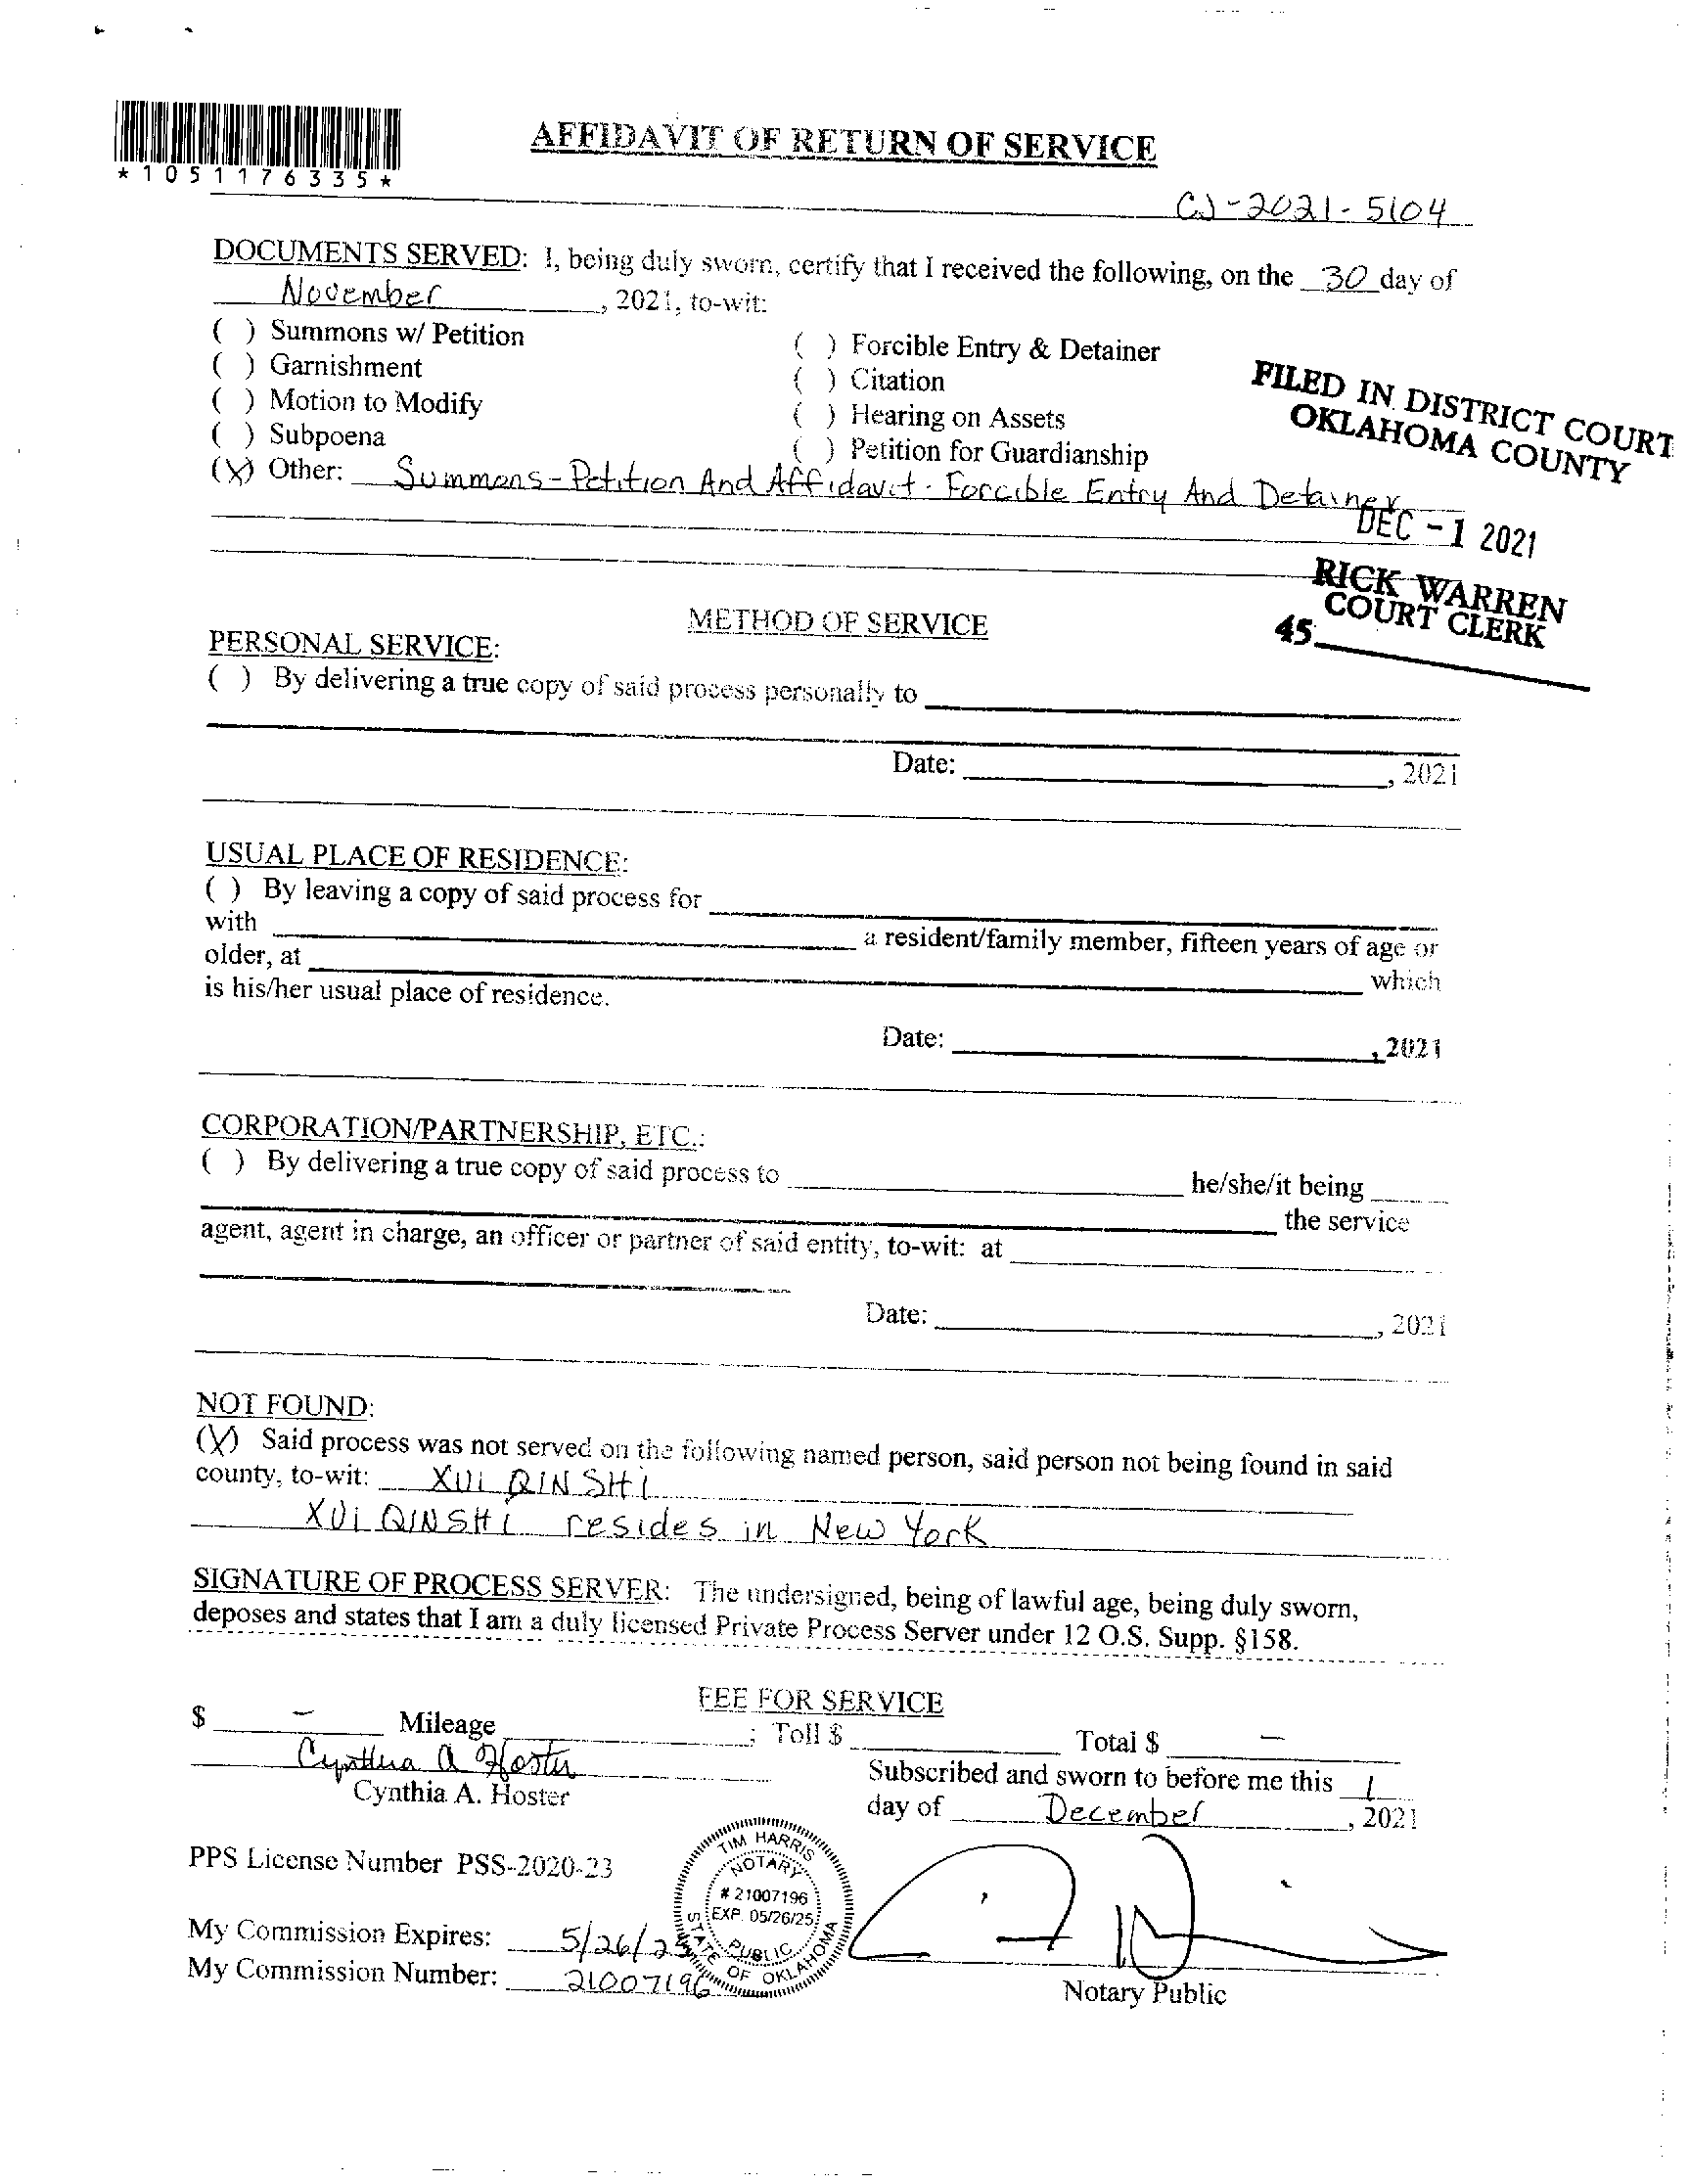 AFFIDAVIT OF RETURN OF SERVICE
*1051176335*
CJ-2021-5104
DOCUMENTS SERVED: I, being duly sworn, certify that I received the following, on the 30 day of
November, 2021, to-wit:
( ) Summons w/ Petition
( ) Garnishment
( ) Motion to Modify
( ) Subpoena
( ) Forcible Entry & Detainer
( ) Citation
( ) Hearing on Assets
( ) Petition for Guardianship
(X) Other: Summons-Petition And Affidavit-Forcible Entry And Detainer
FILED IN DISTRICT COURT
OKLAHOMA COUNTY
DEC -1 2021
RICK WARREN
COURT CLERK
45
METHOD OF SERVICE
PERSONAL SERVICE:
( ) By delivering a true copy of said process personally to
Date: , 2021
USUAL PLACE OF RESIDENCE:
( ) By leaving a copy of said process for
with a resident/family member, fifteen years of age or
older, at which
is his/her usual place of residence.
Date: , 2021
CORPORATION/PARTNERSHIP, ETC.:
( ) By delivering a true copy of said process to he/she/it being
the service
agent, agent in charge, an officer or partner of said entity, to-wit: at
Date: , 2021
NOT FOUND:
(X) Said process was not served on the following named person, said person not being found in said
county, to-wit: XUI QIN SHI
XUI QIN SHI resides in New York
SIGNATURE OF PROCESS SERVER: The undersigned, being of lawful age, being duly sworn,
deposes and states that I am a duly licensed Private Process Server under 12 O.S. Supp. §158.
FEE FOR SERVICE
$ - Mileage ; Toll $ Total $ -
Cynthia A Hoster
Cynthia A. Hoster
Subscribed and sworn to before me this 1
day of December, 2021
PPS License Number PSS-2020-23
TIM HARRIS
NOTARY
# 21007196
EXP. 05/26/25
PUBLIC
STATE OF OKLAHOMA
My Commission Expires: 5/26/25
My Commission Number: 21007196
Notary Public